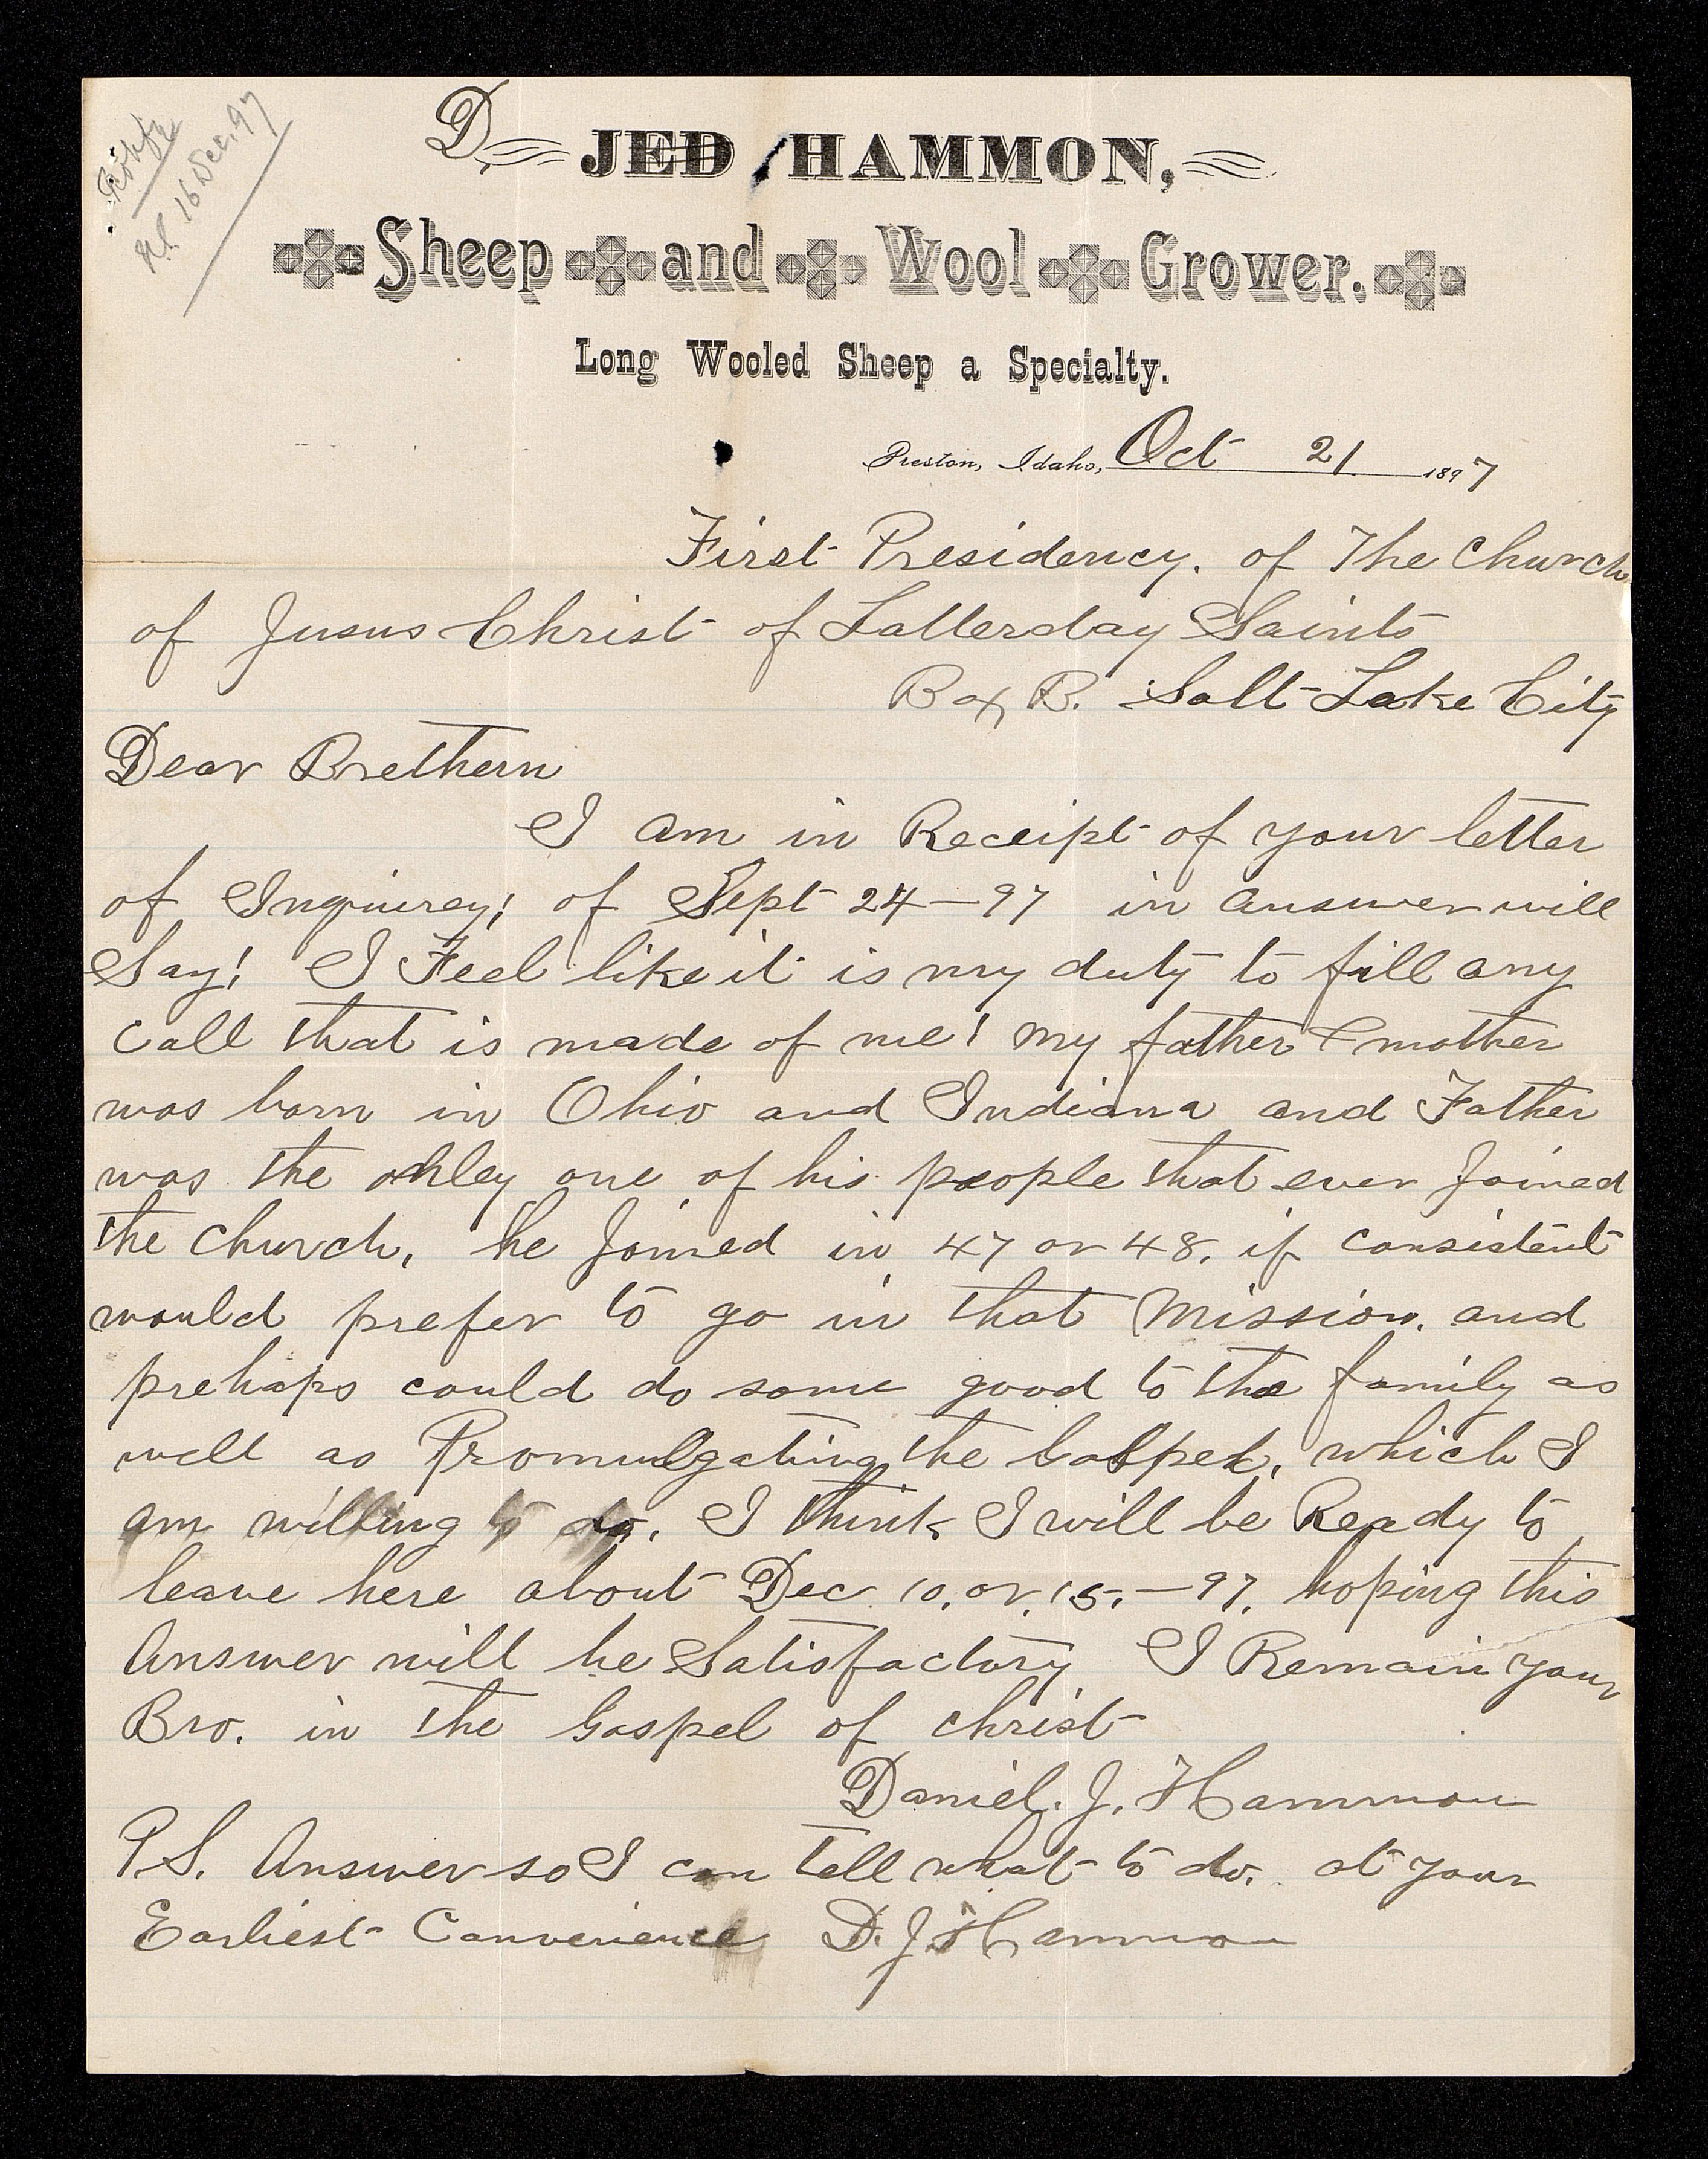 N.S. 16 Dec. 97
D. JED HAMMON,
Sheep and Wool Grower.
Long Wooled Sheep a Specialty.
Preston, Idaho, Oct 21 1897
First Presidency. of The Church
of Jusus Christ of Latterday Saints
Box B. Salt Lake City
Dear Brethern
I am in Receipt of your letter
of Inquirey; of Sept 24-97 in answer will
Say! I Feel like it is my duty to fill any
Call that is made of me! my father & mother
was born in Ohio and Indiana and Father
was the onley one of his people that ever Joined
the Church, he Joined in 47 or 48. if consistent
would prefer to go in that Mission. and
prehaps could do some good to the family as
well as Promulgating the Gospel, which I
am willing to do. I think I will be Ready to
leave here about Dec 10. or. 15.-97. hoping this
Answer will be Satisfactory I Remain your
Bro. in the Gospel of Christ
Daniel. J. Hammon
P.S. Answer so I can tell what to do. at your
Earliest Convenience D. J. Hammon